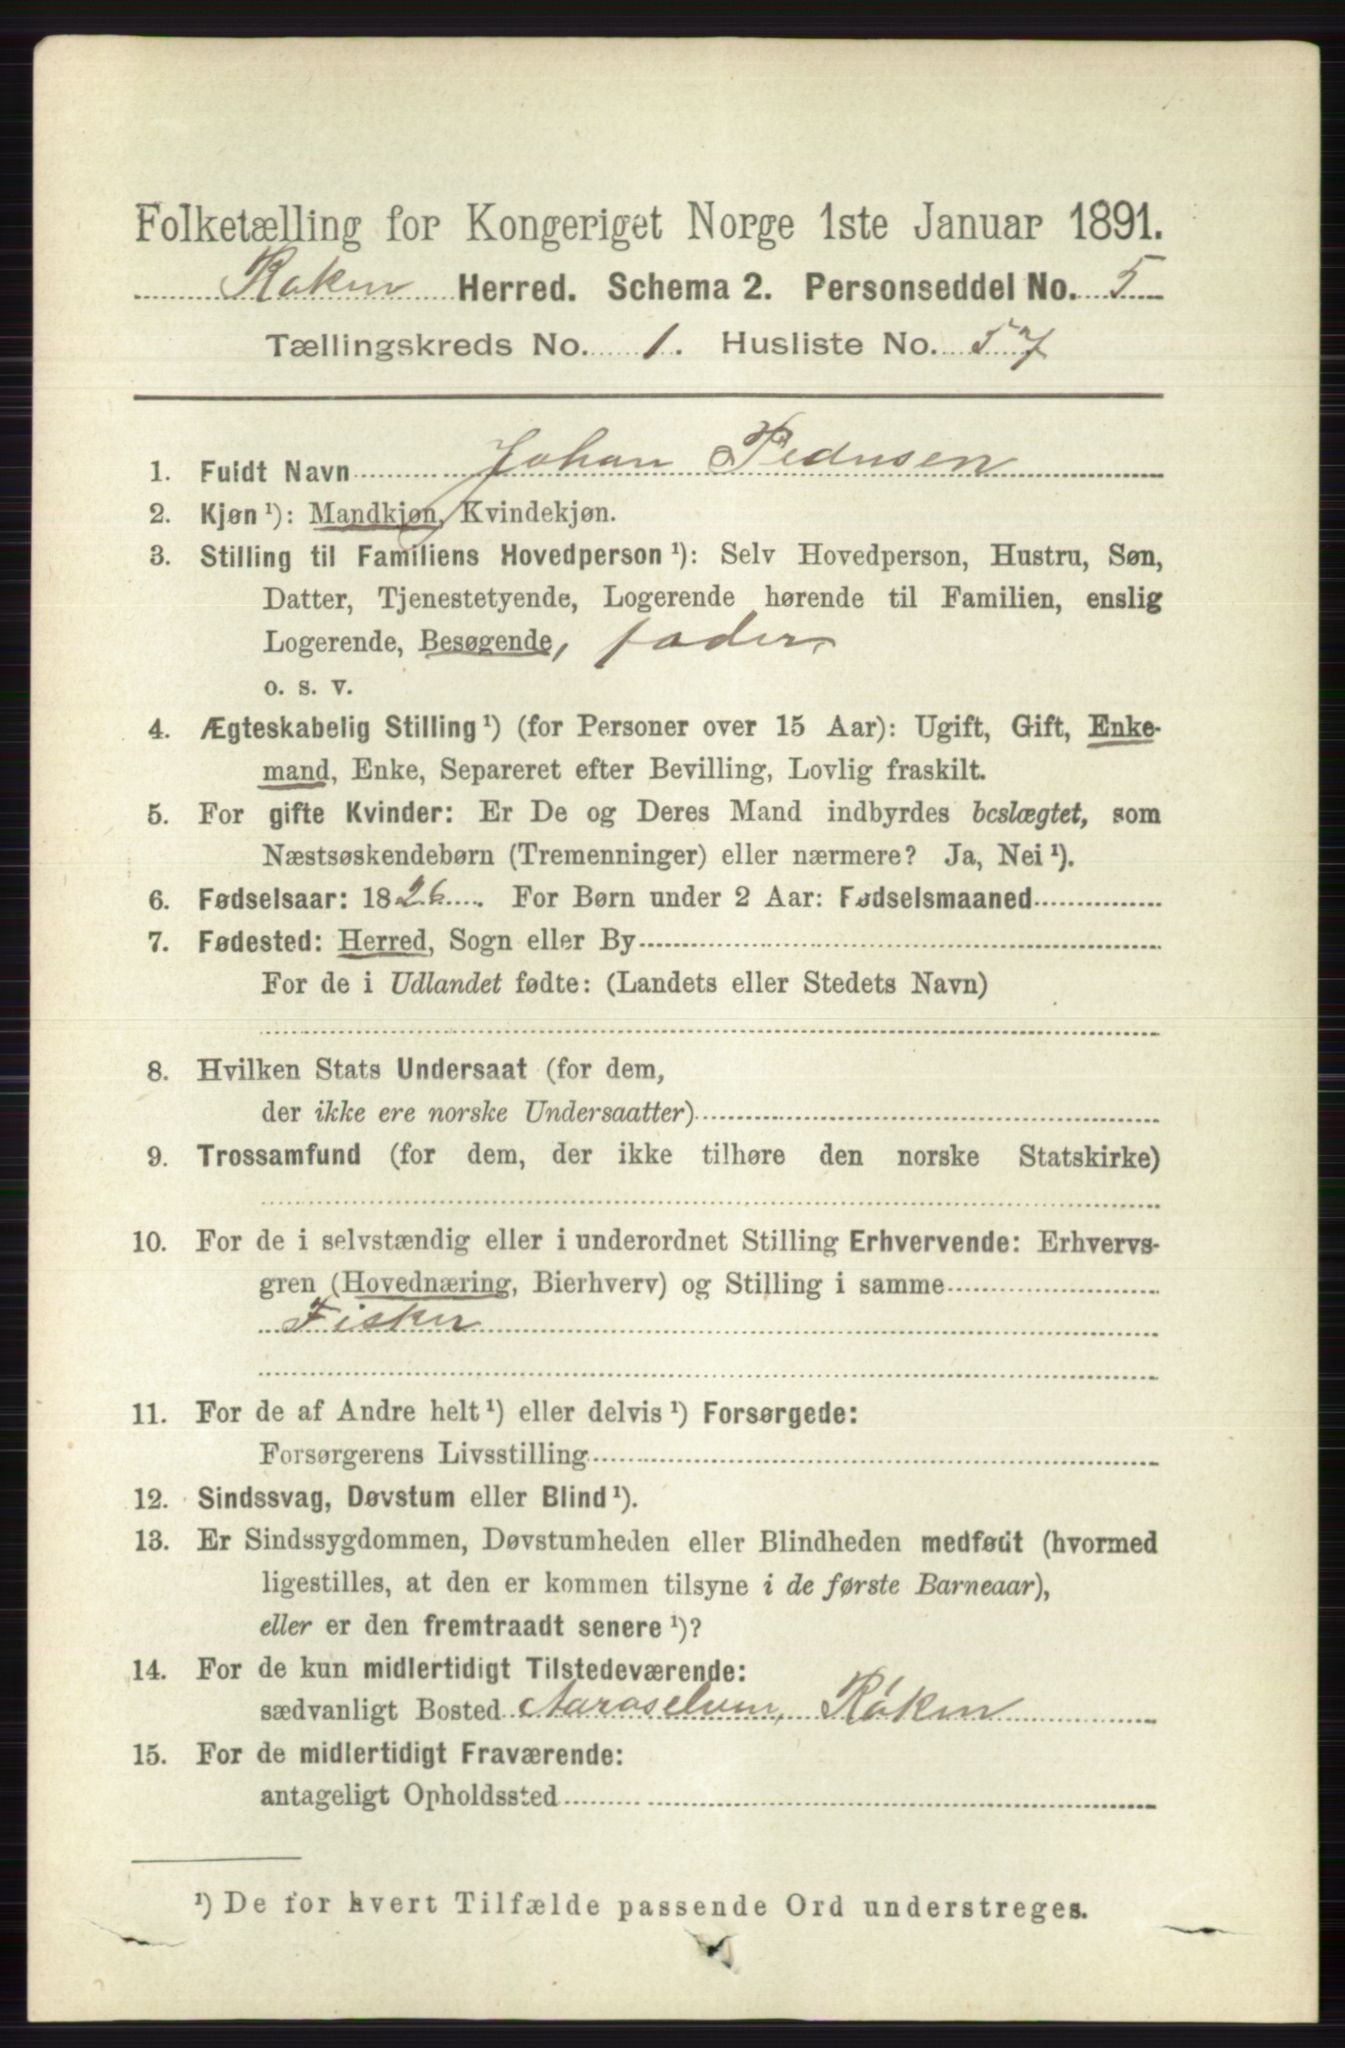 Folketælling for Kongeriget Norge 1ste Januar 1891.
Røken Herred. Schema 2. Personseddel No. 5
Tællingskreds No. 1. Husliste No. 57
1. Fuldt Navn Johan Pedersen
2. Kjøn ¹): Mandkjøn, Kvindekjøn.
3. Stilling til Familiens Hovedperson ¹): Selv Hovedperson, Hustru, Søn,
Datter, Tjenestetyende, Logerende hørende til Familien, enslig
Logerende, Besøgende, fader
o. s. v.
4. Ægteskabelig Stilling ¹) (for Personer over 15 Aar): Ugift, Gift, Enke-
mand, Enke, Separeret efter Bevilling, Lovlig fraskilt.
5. For gifte Kvinder: Er De og Deres Mand indbyrdes beslægtet, som
Næstsøskendebørn (Tremenninger) eller nærmere? Ja, Nei ¹).
6. Fødselsaar: 1826. For Børn under 2 Aar: Fødselsmaaned
7. Fødested: Herred, Sogn eller By
For de i Udlandet fødte: (Landets eller Stedets Navn)
8. Hvilken Stats Undersaat (for dem,
der ikke ere norske Undersaatter)
9. Trossamfund (for dem, der ikke tilhøre den norske Statskirke)
10. For de i selvstændig eller i underordnet Stilling Erhvervende: Erhvervs-
gren (Hovednæring, Bierhverv) og Stilling i samme
Fisker
11. For de af Andre helt ¹) eller delvis ¹) Forsørgede:
Forsørgerens Livsstilling
12. Sindssvag, Døvstum eller Blind ¹).
13. Er Sindssygdommen, Døvstumheden eller Blindheden medfødt (hvormed
ligestilles, at den er kommen tilsyne i de første Barneaar),
eller er den fremtraadt senere ¹)?
14. For de kun midlertidigt Tilstedeværende:
sædvanligt Bosted Røken
15. For de midlertidigt Fraværende:
antageligt Opholdssted
¹) De for hvert Tilfælde passende Ord understreges.